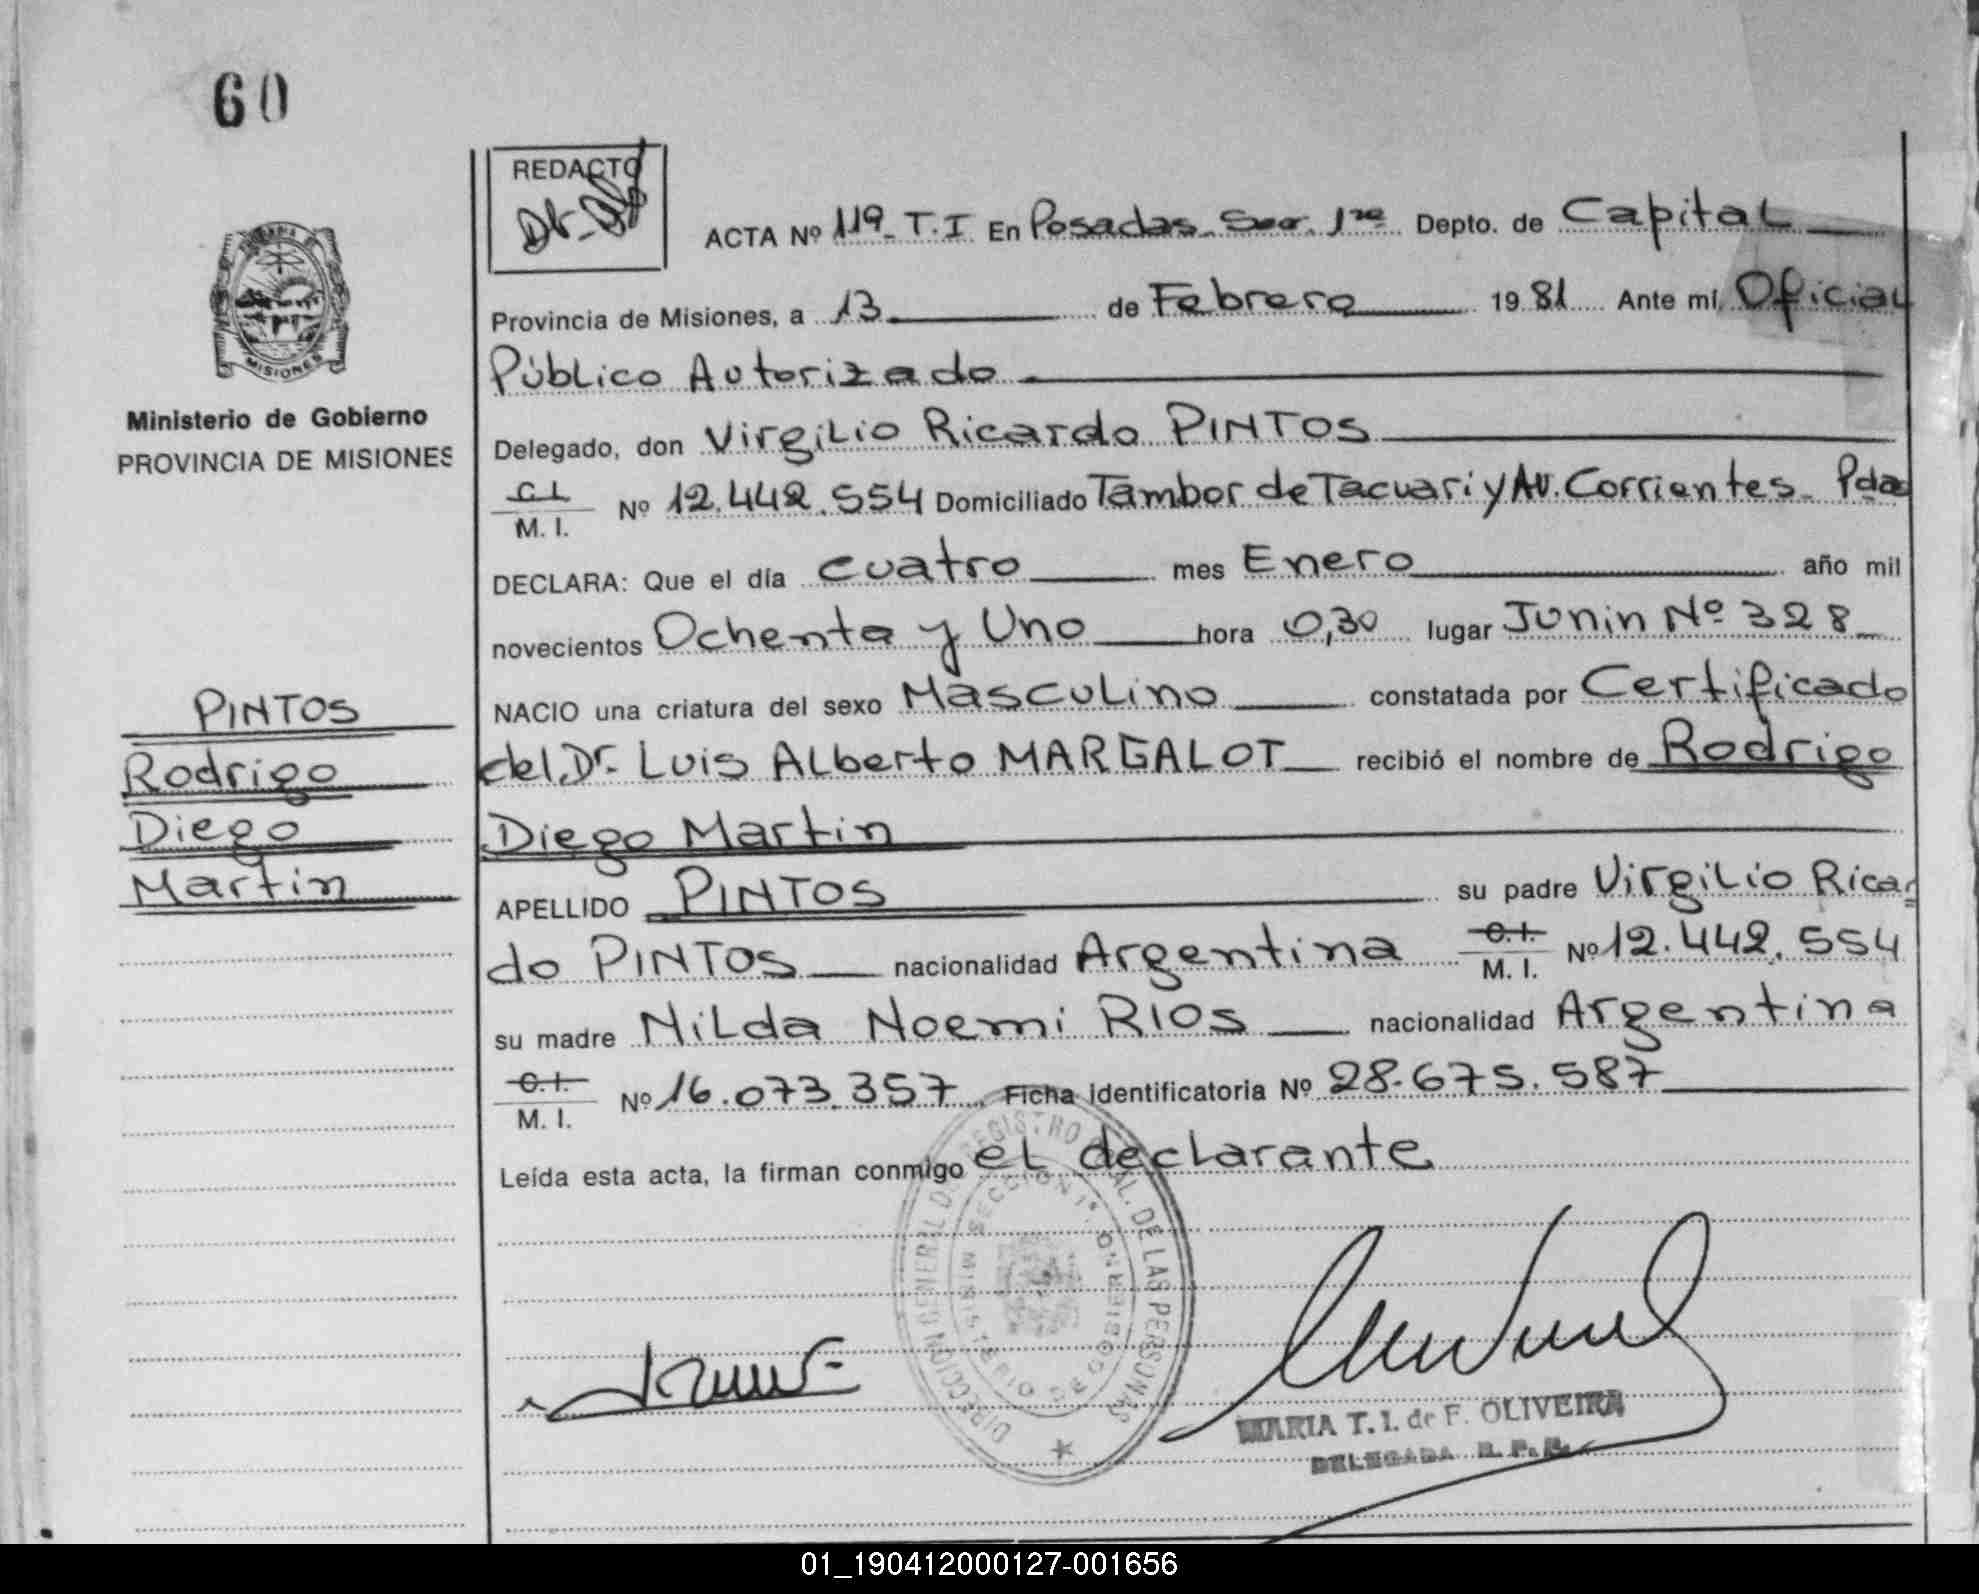 60
REDACTO
ACTA Nº 119_ T.I En Posadas Secc. 1ra Depto. de Capital
Provincia de Misiones, a 13 de Febrero 1981 Ante mí, Oficial
Público Autorizado
Delegado, don Virgilio Ricardo PINTOS
C.I. M. I. Nº 12.442.554 Domiciliado Tambor de Tacuari y AV. Corrientes_ Pdas
DECLARA: Que el día cuatro mes Enero año mil
novecientos Ochenta y Uno hora 0,30 lugar Junin Nº 328
NACIO una criatura del sexo Masculino constatada por Certificado
del Dr. Luis Alberto MARGALOT recibió el nombre de Rodrigo
Diego Martin
APELLIDO PINTOS su padre Virgilio Ricar
do PINTOS nacionalidad Argentina C.I. M. I. Nº 12.442.554
su madre Nilda Noemi RIOS nacionalidad Argentina
C.I. M. I. Nº 16.073.357 Ficha identificatoria Nº 28.675.587
Leída esta acta, la firman conmigo el declarante
MISIONES
Ministerio de Gobierno
PROVINCIA DE MISIONES
PINTOS
Rodrigo
Diego
Martin
DIRECCION GENERAL DEL REGISTRO PCIAL. DE LAS PERSONAS
SECCION 1ª
MINISTERIO DE GOBIERNO
MARIA T. I. de F. OLIVEIRA
DELEGADA R. P. P.
01_190412000127-001656